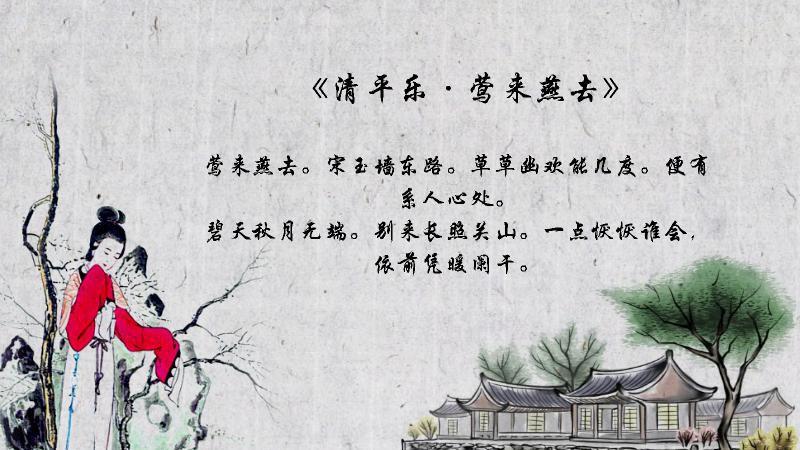 《清平乐·莺来燕去》
莺来燕去。宋玉墙东路。草草幽欢能几度。便有
系人心处。
碧天秋月无端。别来长照关山。一点恹恹谁会,
依前凭暖阑干。